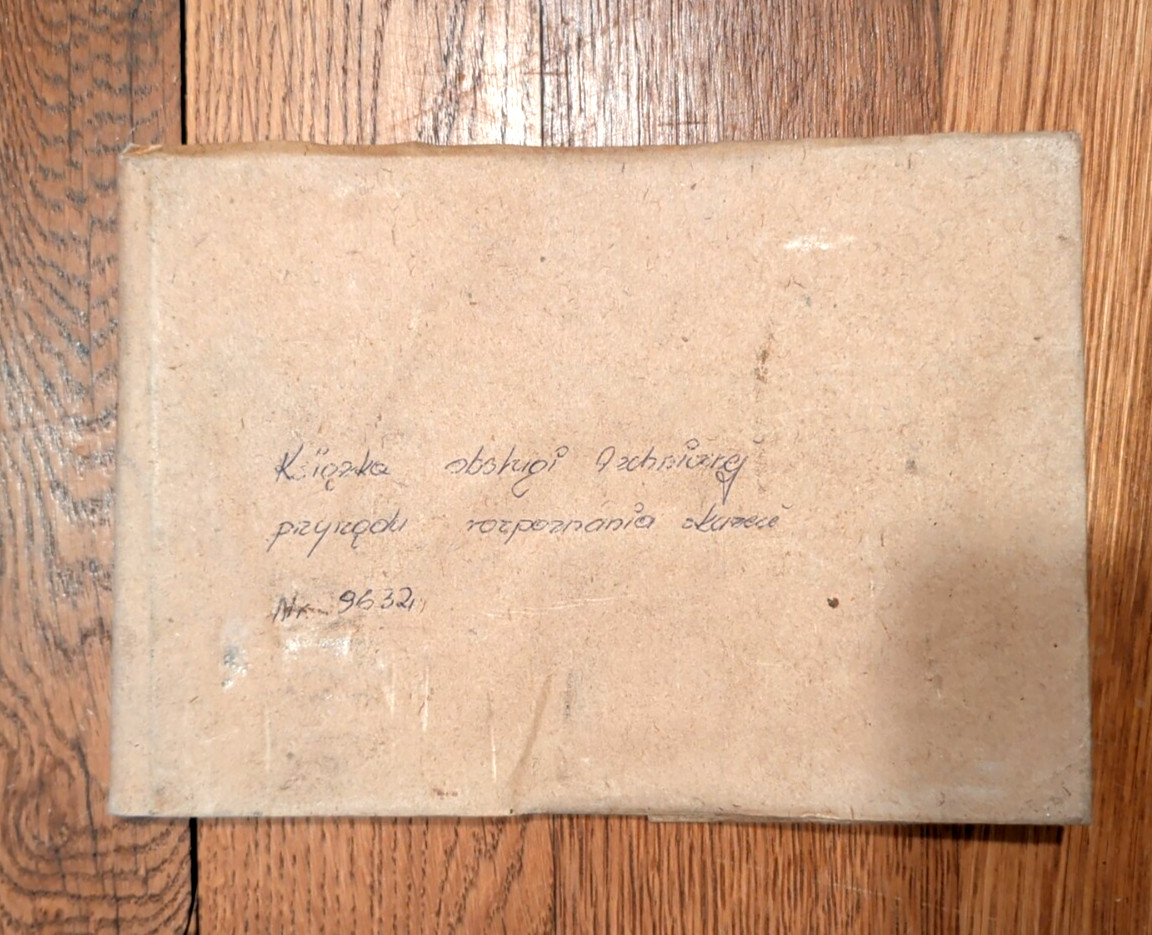 Książka obsługi technicznej
przyrządu rozpoznania skażeń
Nr 9632